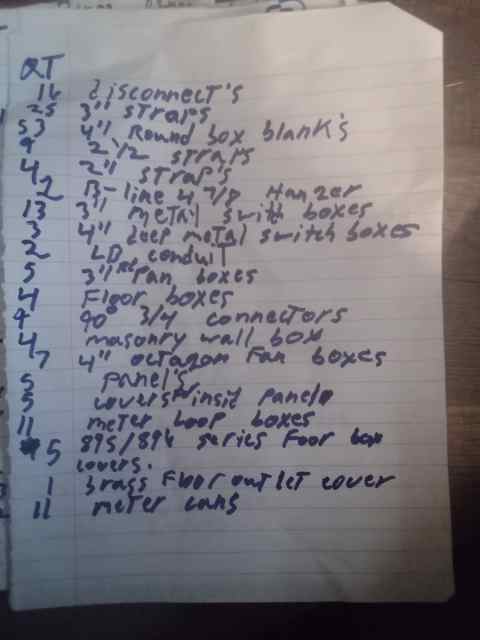 QT
16 Disconnect's
25 3" straps
53 4" Round box blank's
9 2 1/2 straps
4 2" strap's
2 B-line 4 7/8 Hanger
13 3" metal swith boxes
3 4" deep metal switch boxes
2 LB conduit
5 3" Rd Pan boxes
4 Floor boxes
9 90° 3/4 connectors
4 masonry wall box
7 4" octagon Fan boxes
5 panel's
5 covers insid panel
11 meter loop boxes
5 895/896 series Foor box
covers.
1 brass Floor outlet cover
11 meter cans